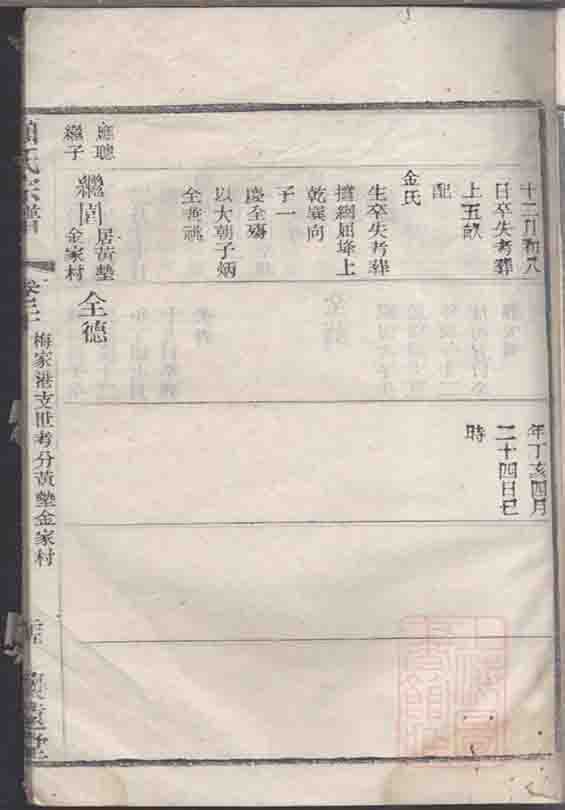 十二月初八
日卒失考葬
上五畝
配
金氏
生卒失考葬
擋網屈埄上
乾巽向
子一
慶全殤
以大朝子炳
全兼祧
應聰
繼子
繼閏
居黃墊
金家村
年丁亥四月
二十四日巳
時
全德
氏宗譜
梅家港支世考分黃墊金家村